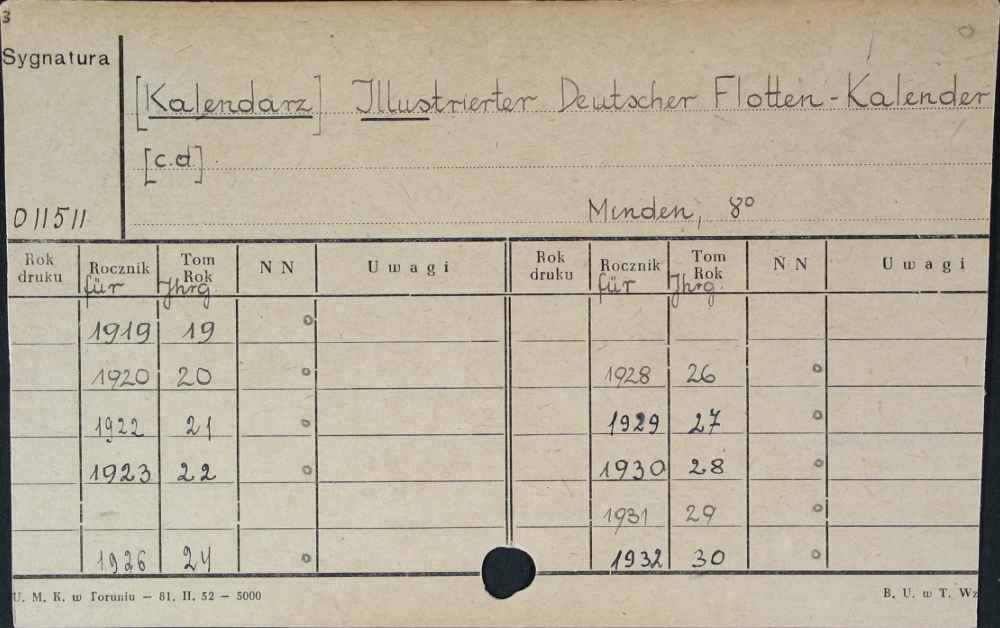 3
Sygnatura
[Kalendarz] Illustrierter Deutscher Flotten-Kalender
[c.d.]
011511
Minden, 8°
Rok druku Rocznik für Tom Rok Jhrg. N N Uwagi Rok druku Rocznik für Tom Rok Jhrg. N N Uwagi
1919 19 o
1920 20 o 1928 26 o
1922 21 o 1929 27 o
1923 22 o 1930 28 o
1931 29 o
1926 24 o 1932 30 o
U. M. K. w Toruniu — 81. II. 52 — 5000
B. U. w T. Wz